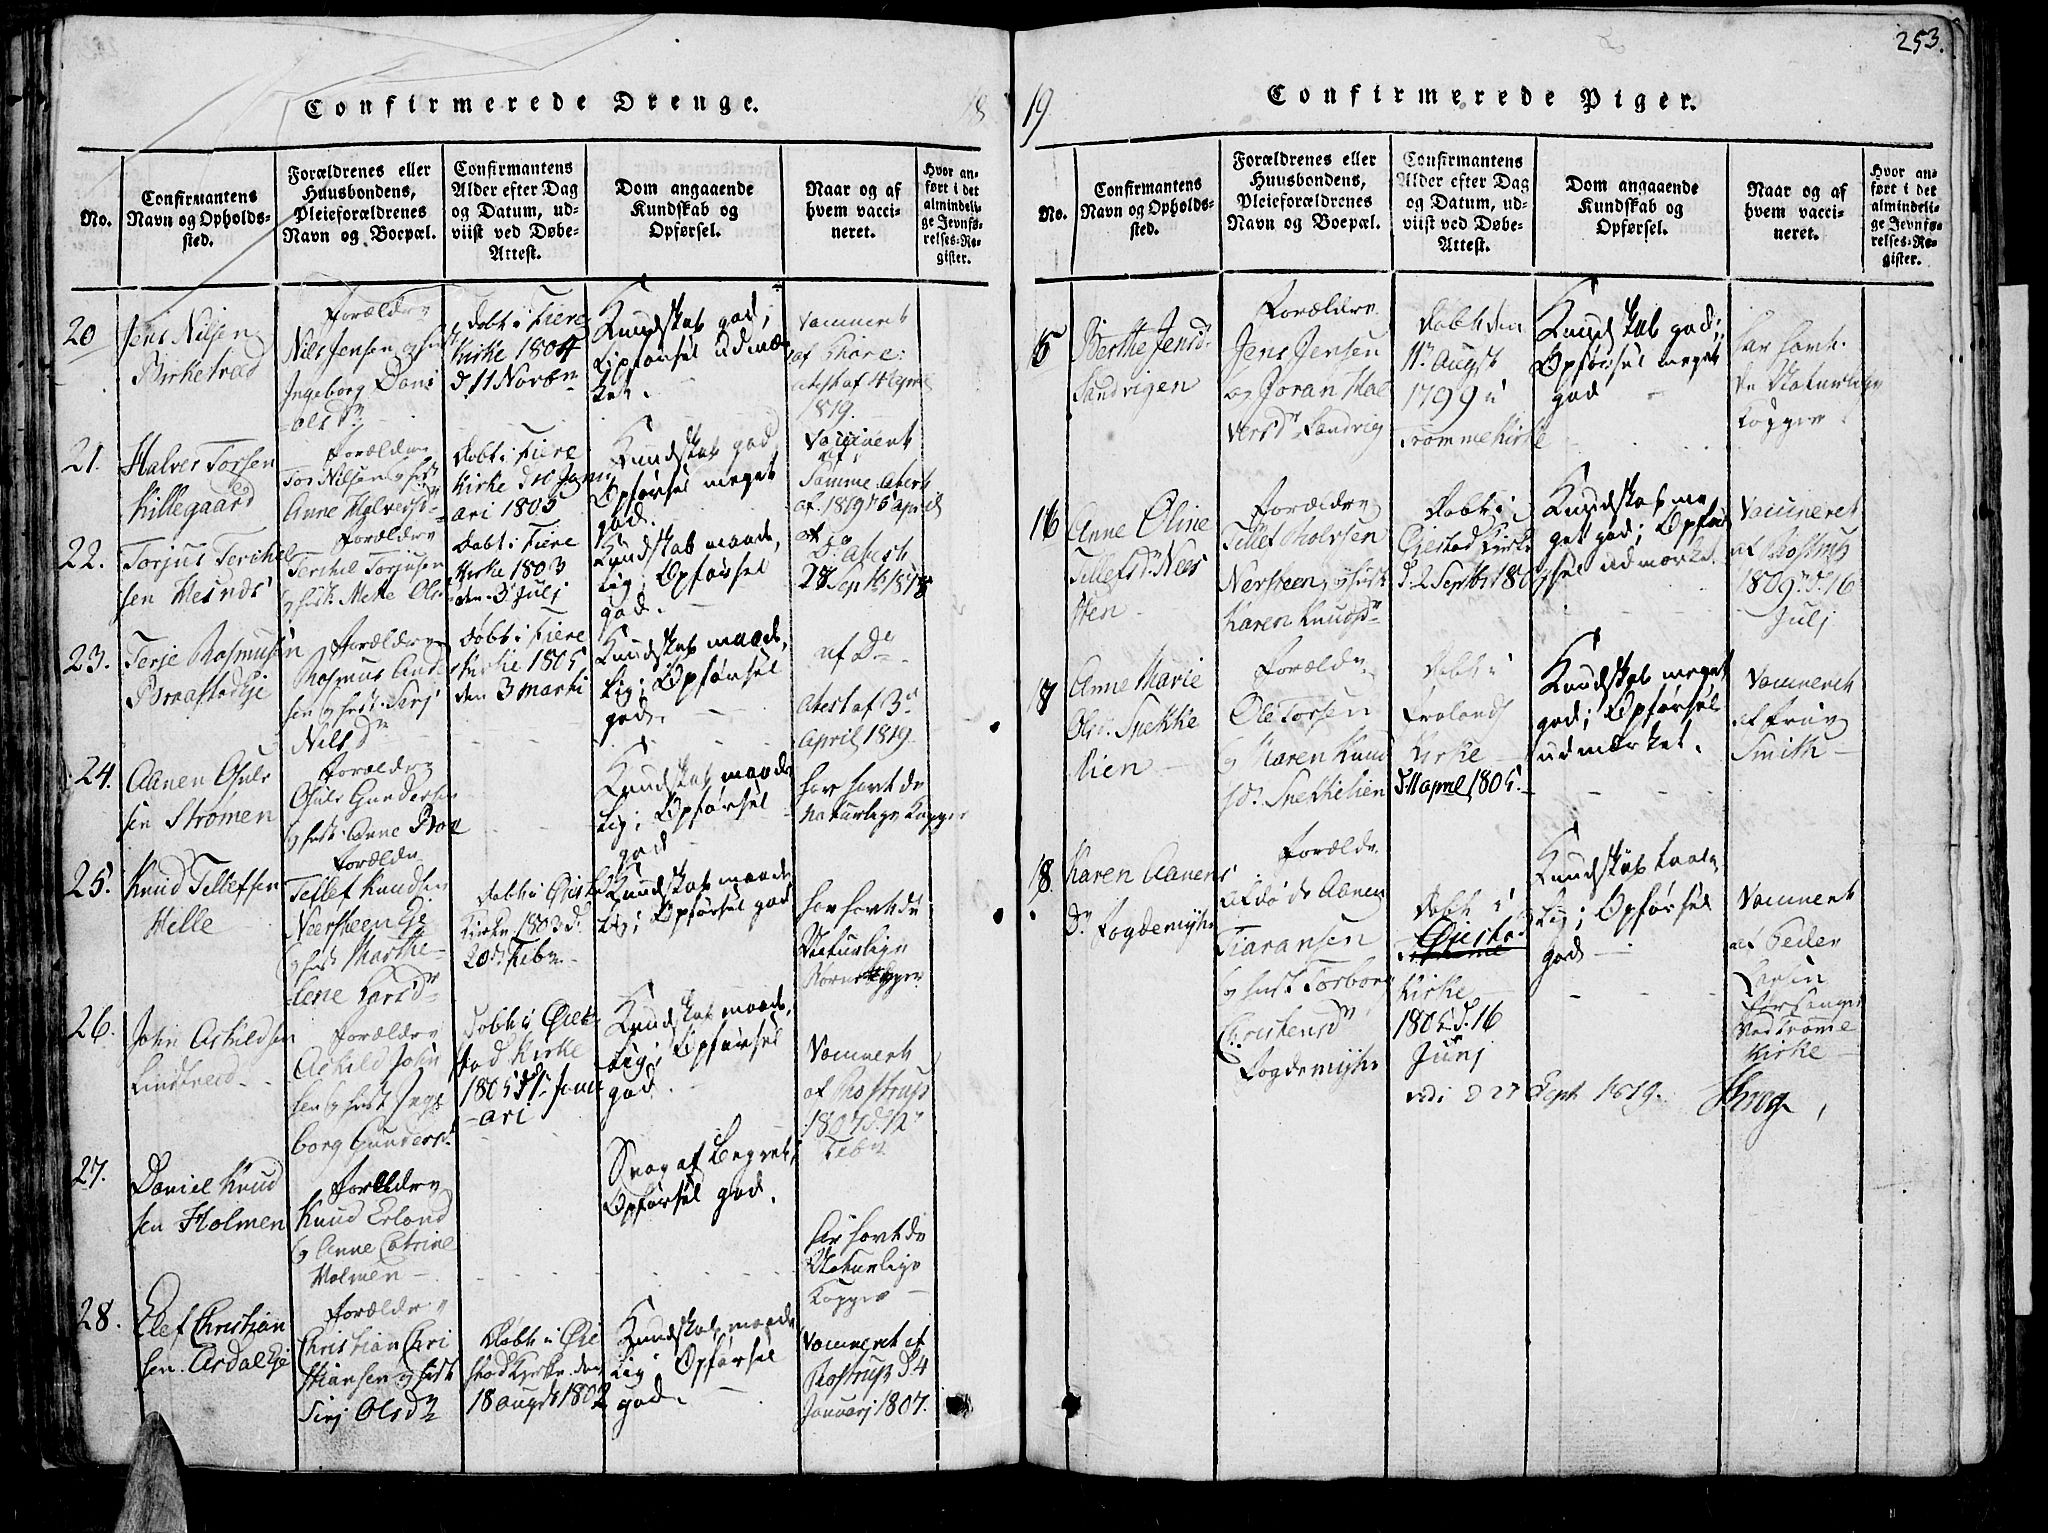 253.
Confirmerede Drenge.
18
No.
Confirmantens
Navn og Opholds-
sted.
Forældrenes eller
Huusbondens,
Pleieforældrenes
Navn og Boepæl.
Confirmantens
Alder efter Dag
og Datum, ud-
viist ved Døbe-
Attest.
Dom angaaende
Kundskab og
Opførsel.
Naar og af
hvem vacci-
neret.
Hvor an-
ført i det
almindeli-
ge Jevnfø-
relses-Re-
gister.
20
Jens Nilsen
Birketræd
Forældre
Nils Jensen
Ingeborg Dani
olsd
Døbt i Fiere
Kirke 1804
d. 11 Novbr
Kundskab god;
Opførsel udmær
ket.
Vaccineret
af
atest af April
1819.
21.
Halver Torsen
Killegaard
Forældre
Tor Nilsen
Anne Halvorsd
Døbt i Fiere
Kirke Janu
ari 1805
Kundskab god
Opførsel meget
god.
Vaccineret
af
Samme Atest
af 1819 April
22.
Torjus Terchel
sen
Forældre
Terchel Torjusen
Mette Ols
Døbt i Fiere
Kirke 1803
den 3 Julj
Kundskab maade
lig; Opførsel
god.
af
Do Atest
28 Septb 1818
23.
Terje Rasmusen
Braastad Eje
Forældre
Rasmus
Nilsd
Døbt i Fiere
Kirke 1805
den 3 Marti
Kundskab maade
lig; Opførsel
god.
af Do
Atest af 3
April 1819
24.
Aanen
sen Strømen
Forældre
Gunders
Anne Boe
Kundskab maade
lig; Opførsel
god
har havt de
naturlige Kopper
25.
Knud Tellefsen
Helle
Forældre
Tellef Knudsen
Neersteen Eje
Marthe
Lene Larsd
Døbt i Øiest
Kirke 1803 d.
20 Feb
Kundskab maade
lig; Opførsel god
har havt de
Naturlige
Børnekopper
26.
John Askildsen
Lindtveid
Forældre
Askild John
sen Inge
borg Gundersd
Døbt i Øiet
stad Kirke
1805 Janu
ari
Kundskab maade
lig; Opførsel
god
Vaccineret
af Rostrup
1807 d. 12
Feb
27.
Daniel Knud
sen Holmen
Forældre
Knud Erland
og Anne Catrine
Holmen
Svag af Begreb,
Opførsel god.
har havt de
Naturlige
Kopper
28.
Elef Christian
sen Asdal Eje
Forældre
Christian Chri
stiansen
Sirj Olsd
Døbt i Øie
stad Kirke den
18 August 1802
Kundskab maade
lig; Opførsel
god.
Vaccineret af
Rostrup d. 4
Januarj 1807.
19
Confirmerede Piger.
No.
Confirmantens
Navn og Opholds-
sted.
Forældrenes eller
Huusbondens,
Pleieforældrenes
Navn og Boepæl.
Confirmantens
Alder efter Dag
og Datum, ud-
viist ved Døbe-
Attest.
Dom angaaende
Kundskab og
Opførsel.
Naar og af
hvem vacci-
neret.
Hvor an-
ført i det
almindeli-
ge Jevnfø-
relses-Re-
gister.
15
Berthe Jensd
Sandvigen
Forældre
Jens Jensen
og Joran Hal
versd Sandvig
Døbt den
11 Augst
1799 i
Tromme Kirke
Kundskab god;
Opførsel meget
god
har havt
de Naturlige
Kopper
16
Anne Oline
Tellefsd Neer
sten
Forældre
Tellef Tholvsen
Nersteen
Karen Knudsd
Døbt i
Øiestad Kirke
d. 2 Septbr
Kundskab me
get god; Opfør
sel udmærket
Vaccineret
af Rostrup
1809 d. 16
Julj
17
Anne Marie
Olsd. Snekke
lien
Forældre
Ole Torsen
og Maren Knud
sd. Snekkelien
Døbt i
Frolands
Kirke
d. 11 april 1805.
Kundskab meget
god; Opførsel
udmærket.
Vaccineret
af Frue
Smith
18.
Karen Aanens
D Fogdemyhr
Forældre
afdøde Aanen
Tiaransen
Torborg
Christensd
Fogdemyhr
Døbt i
Øiestad
Kirke
1805 d. 16
Junj
Kundskab taale
lig; Opførsel
god
Vaccineret
af Peder
Larsen
Forsanger
Ved Trome
Kirke
vidi d 27 Sept 1819.
Krog